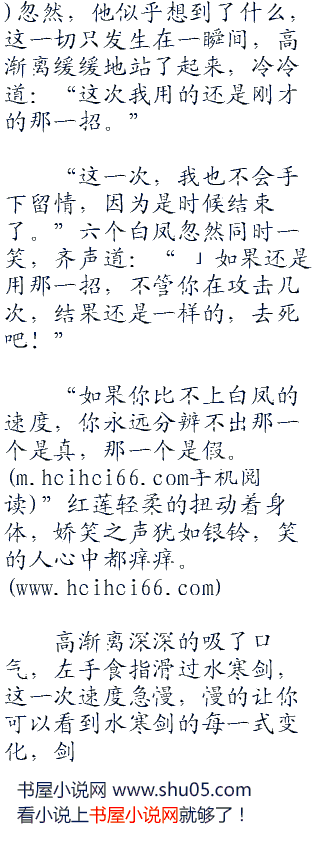 )忽然，他似乎想到了什么，
这一切只发生在一瞬间，高
渐离缓缓地站了起来，冷冷
道：“这次我用的还是刚才
的那一招。”
“这一次，我也不会手
下留情，因为是时候结束
了。”六个白凤忽然同时一
笑，齐声道：“ 」如果还是
用那一招，不管你在攻击几
次，结果还是一样的，去死
吧！”
“如果你比不上白凤的
速度，你永远分辨不出那一
个是真，那一个是假。
(m.hcihci66.com手机阅
读)”红莲轻柔的扭动着身
体，娇笑之声犹如银铃，笑
的人心中都痒痒。
(www.hcihci66.com)
高渐离深深的吸了口
气，左手食指滑过水寒剑，
这一次速度急慢，慢的让你
可以看到水寒剑的每一式变
化，剑
书屋小说网 www.shu05.com
看小说上书屋小说网就够了！